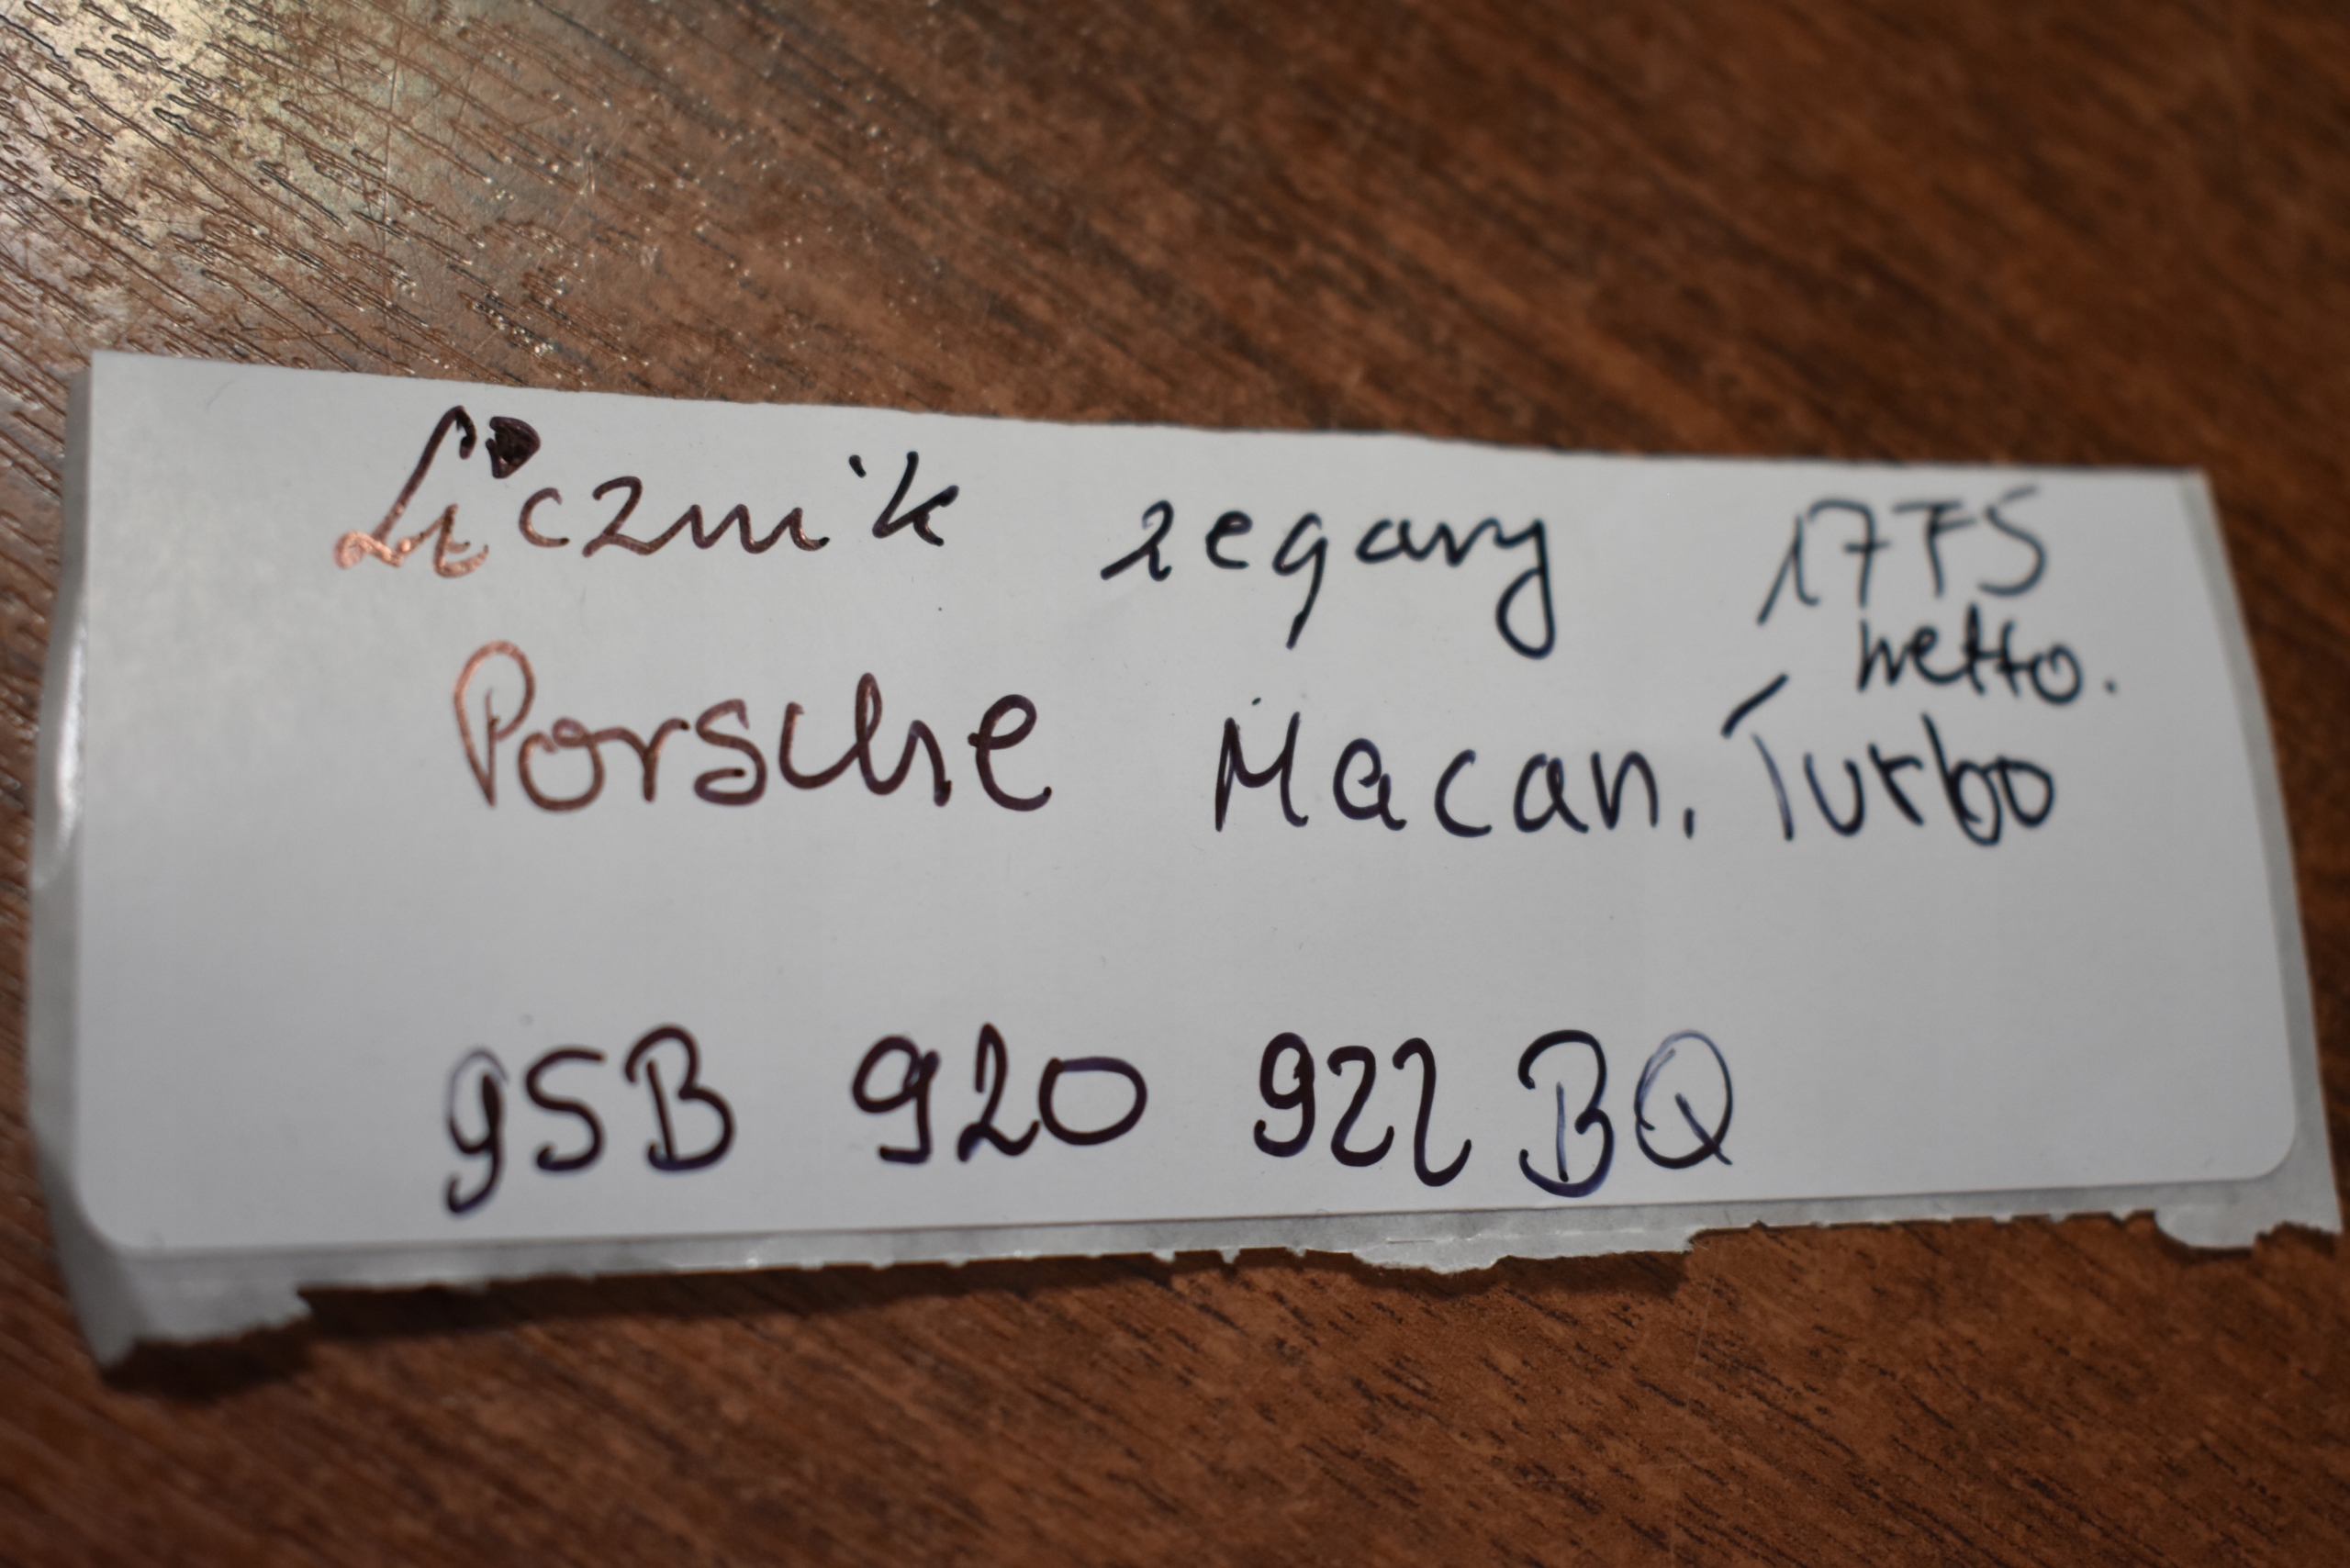 Licznik zegary 1775
netto.
Porsche Macan. Turbo
95B 920 922 BQ